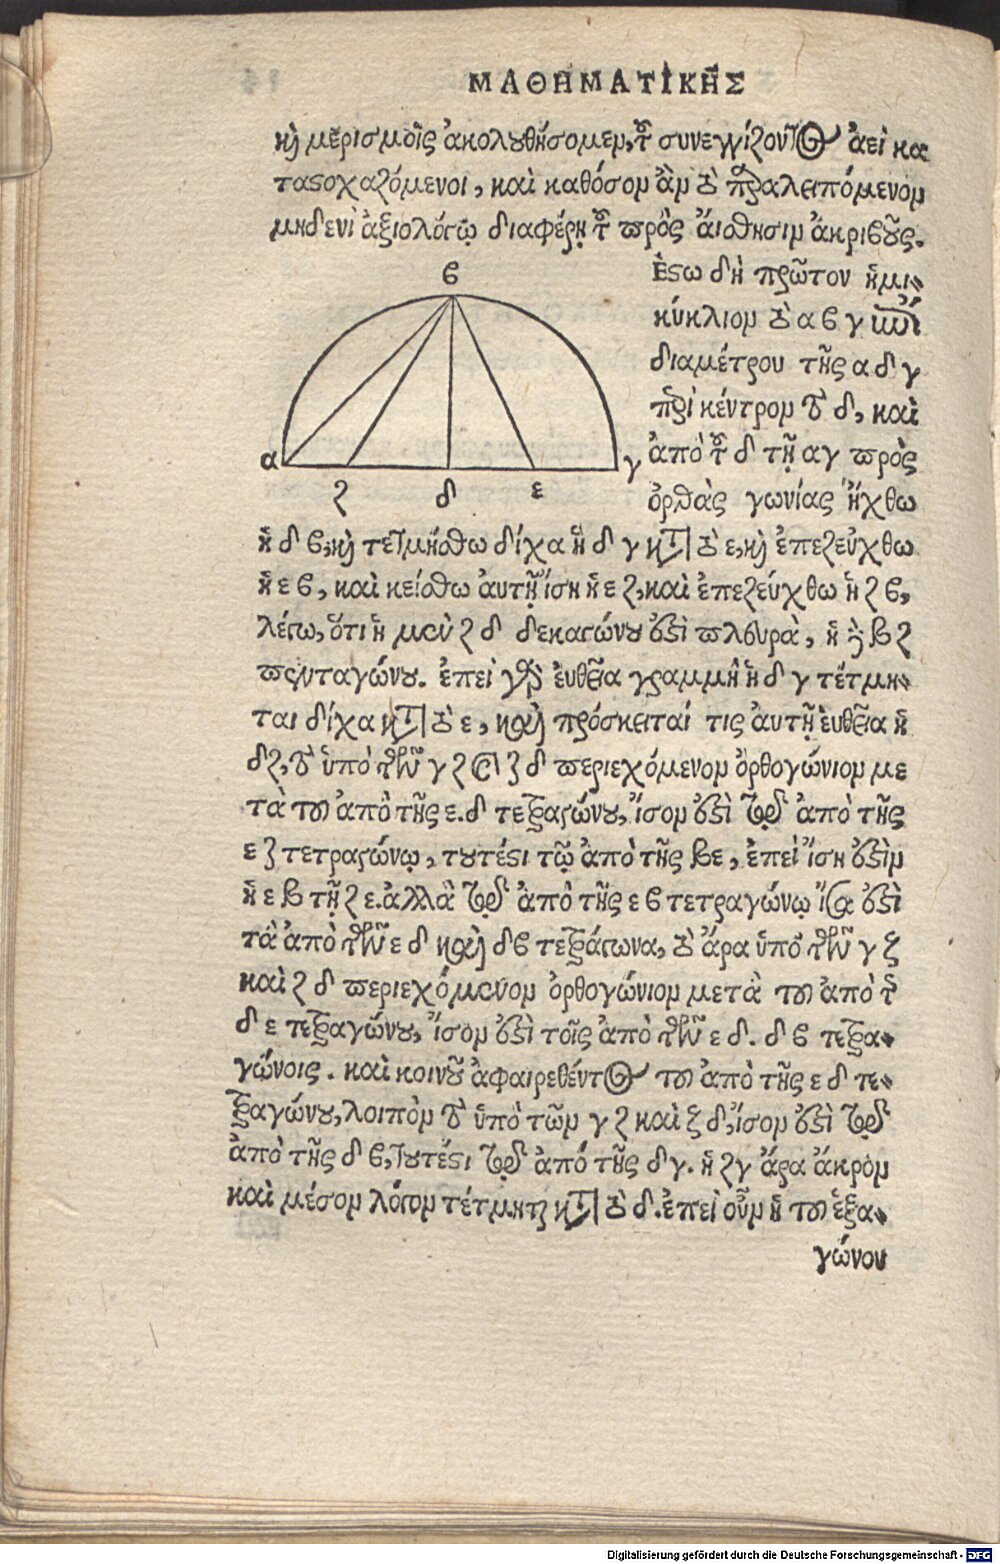 ΜΑΘΗΜΑΤΙΚΗ͂Σ
καὶ μερισμοῖς ἀκολουθήσομεν, τοῦ συνεγγίζοντος ἀεὶ κα
ταστοχαζόμενοι, καὶ καθόσον ἂν τὸ παραλειπόμενον
μηδενὶ ἀξιολόγῳ διαφέρῃ τοῦ πρὸς ἄισθησιν ἀκριβοῦς.
Ἔστω δὴ πρῶτον ἡμι-
κύκλιον τὸ α β γ ἐπὶ
διαμέτρου τῆς α δ γ
περὶ κέντρον τὸ δ, καὶ
ἀπὸ τοῦ δ τῇ αγ πρὸς
ὀρθὰς γωνίας ἤχθω
β
α
γ
ζ
δ
ε
ἡ δ β, καὶ τετμήσθω δίχα ἡ δ γ κατὰ τὸ ε, καὶ ἐπεζεύχθω
ἡ ε β, καὶ κείσθω ἀυτῇ ἴση ἡ ε ζ, καὶ ἐπεζεύχθω ἡ ζ β,
λέγω, ὅτι ἡ μὲν ζ δ δεκαγώνου ἐστὶ πλευρὰ, ἡ δὲ β ζ
πενταγώνου. ἐπεὶ γὰρ ἐυθεῖα γραμμὴ ἡ δ γ τέτμη-
ται δίχα κατὰ τὸ ε, καὶ πρόσκειταί τις ἀυτῇ ἐυθεῖα ἡ
δζ, τὸ ὑπὸ τῶν γ ζ καὶ ζ δ περιεχόμενον ὀρθογώνιον με
τὰ τοῦ ἀπὸ τῆς ε. δ τετραγώνου, ἴσον ἐστὶ τῷ ἀπὸ τῆς
ε ζ τετραγώνῳ, τουτέστι τῷ ἀπὸ τῆς βε, ἐπεὶ ἴση ἐστὶν
ἡ ε β τῇ ζ ε. ἀλλὰ τῷ ἀπὸ τῆς ε β τετραγώνῳ ἴσα ἐστὶ
τὰ ἀπὸ τῶν ε δ καὶ δβ τετράγωνα, τὸ ἄρα ὑπὸ τῶν γ ζ
καὶ ζ δ περιεχόμενον ὀρθογώνιον μετὰ τοῦ ἀπὸ τῆς
δ ε τετραγώνου, ἴσον ἐστὶ τοῖς ἀπὸ τῶν ε δ. δ β τετρα-
γώνοις. καὶ κοινοῦ ἀφαιρεθέντος τοῦ ἀπὸ τῆς ε δ τε-
τραγώνου, λοιπὸν τὸ ὑπὸ τῶν γ ζ καὶ ζ δ, ἴσον ἐστὶ τῷ
ἀπὸ τῆς δ β, τουτέστι τῷ ἀπὸ τῆς δγ. ἡ ζγ ἄρα ἄκρον
καὶ μέσον λόγον τέτμηται κατὰ τὸ δ. ἐπεὶ οὖν ἡ τοῦ ἑξα-
γώνου
Digitalisierung gefördert durch die Deutsche Forschungsgemeinschaft - DFG